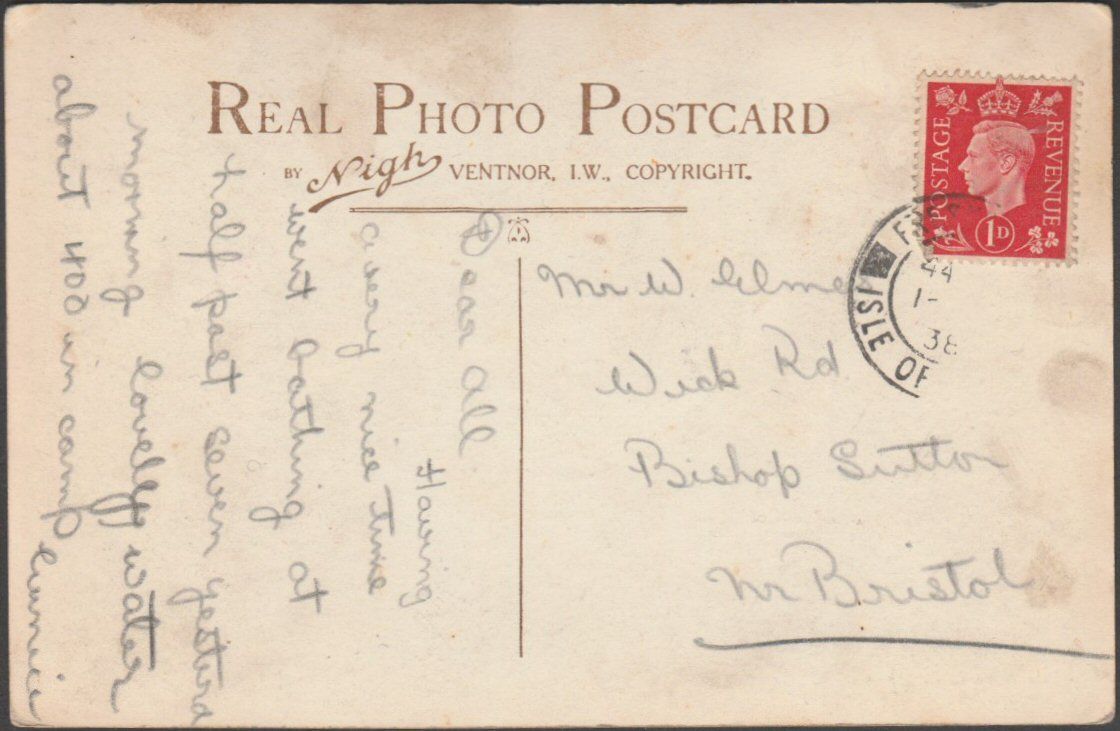 REAL PHOTO POSTCARD
BY Nigh VENTNOR, I.W., COPYRIGHT.
POSTAGE REVENUE
1D
44
1-
38
ISLE OF
Mr W. Elmes
Wick Rd
Bishop Sutton
Nr Bristol
Dear All
Having
a very nice time
went bathing at
half past seven yesterd
morning lovely water
about 400 in camp